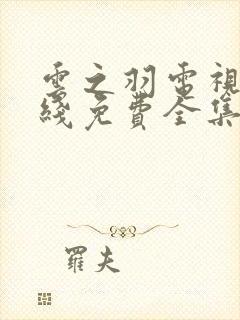 雲之羽電視
綫免費全集
羅夫